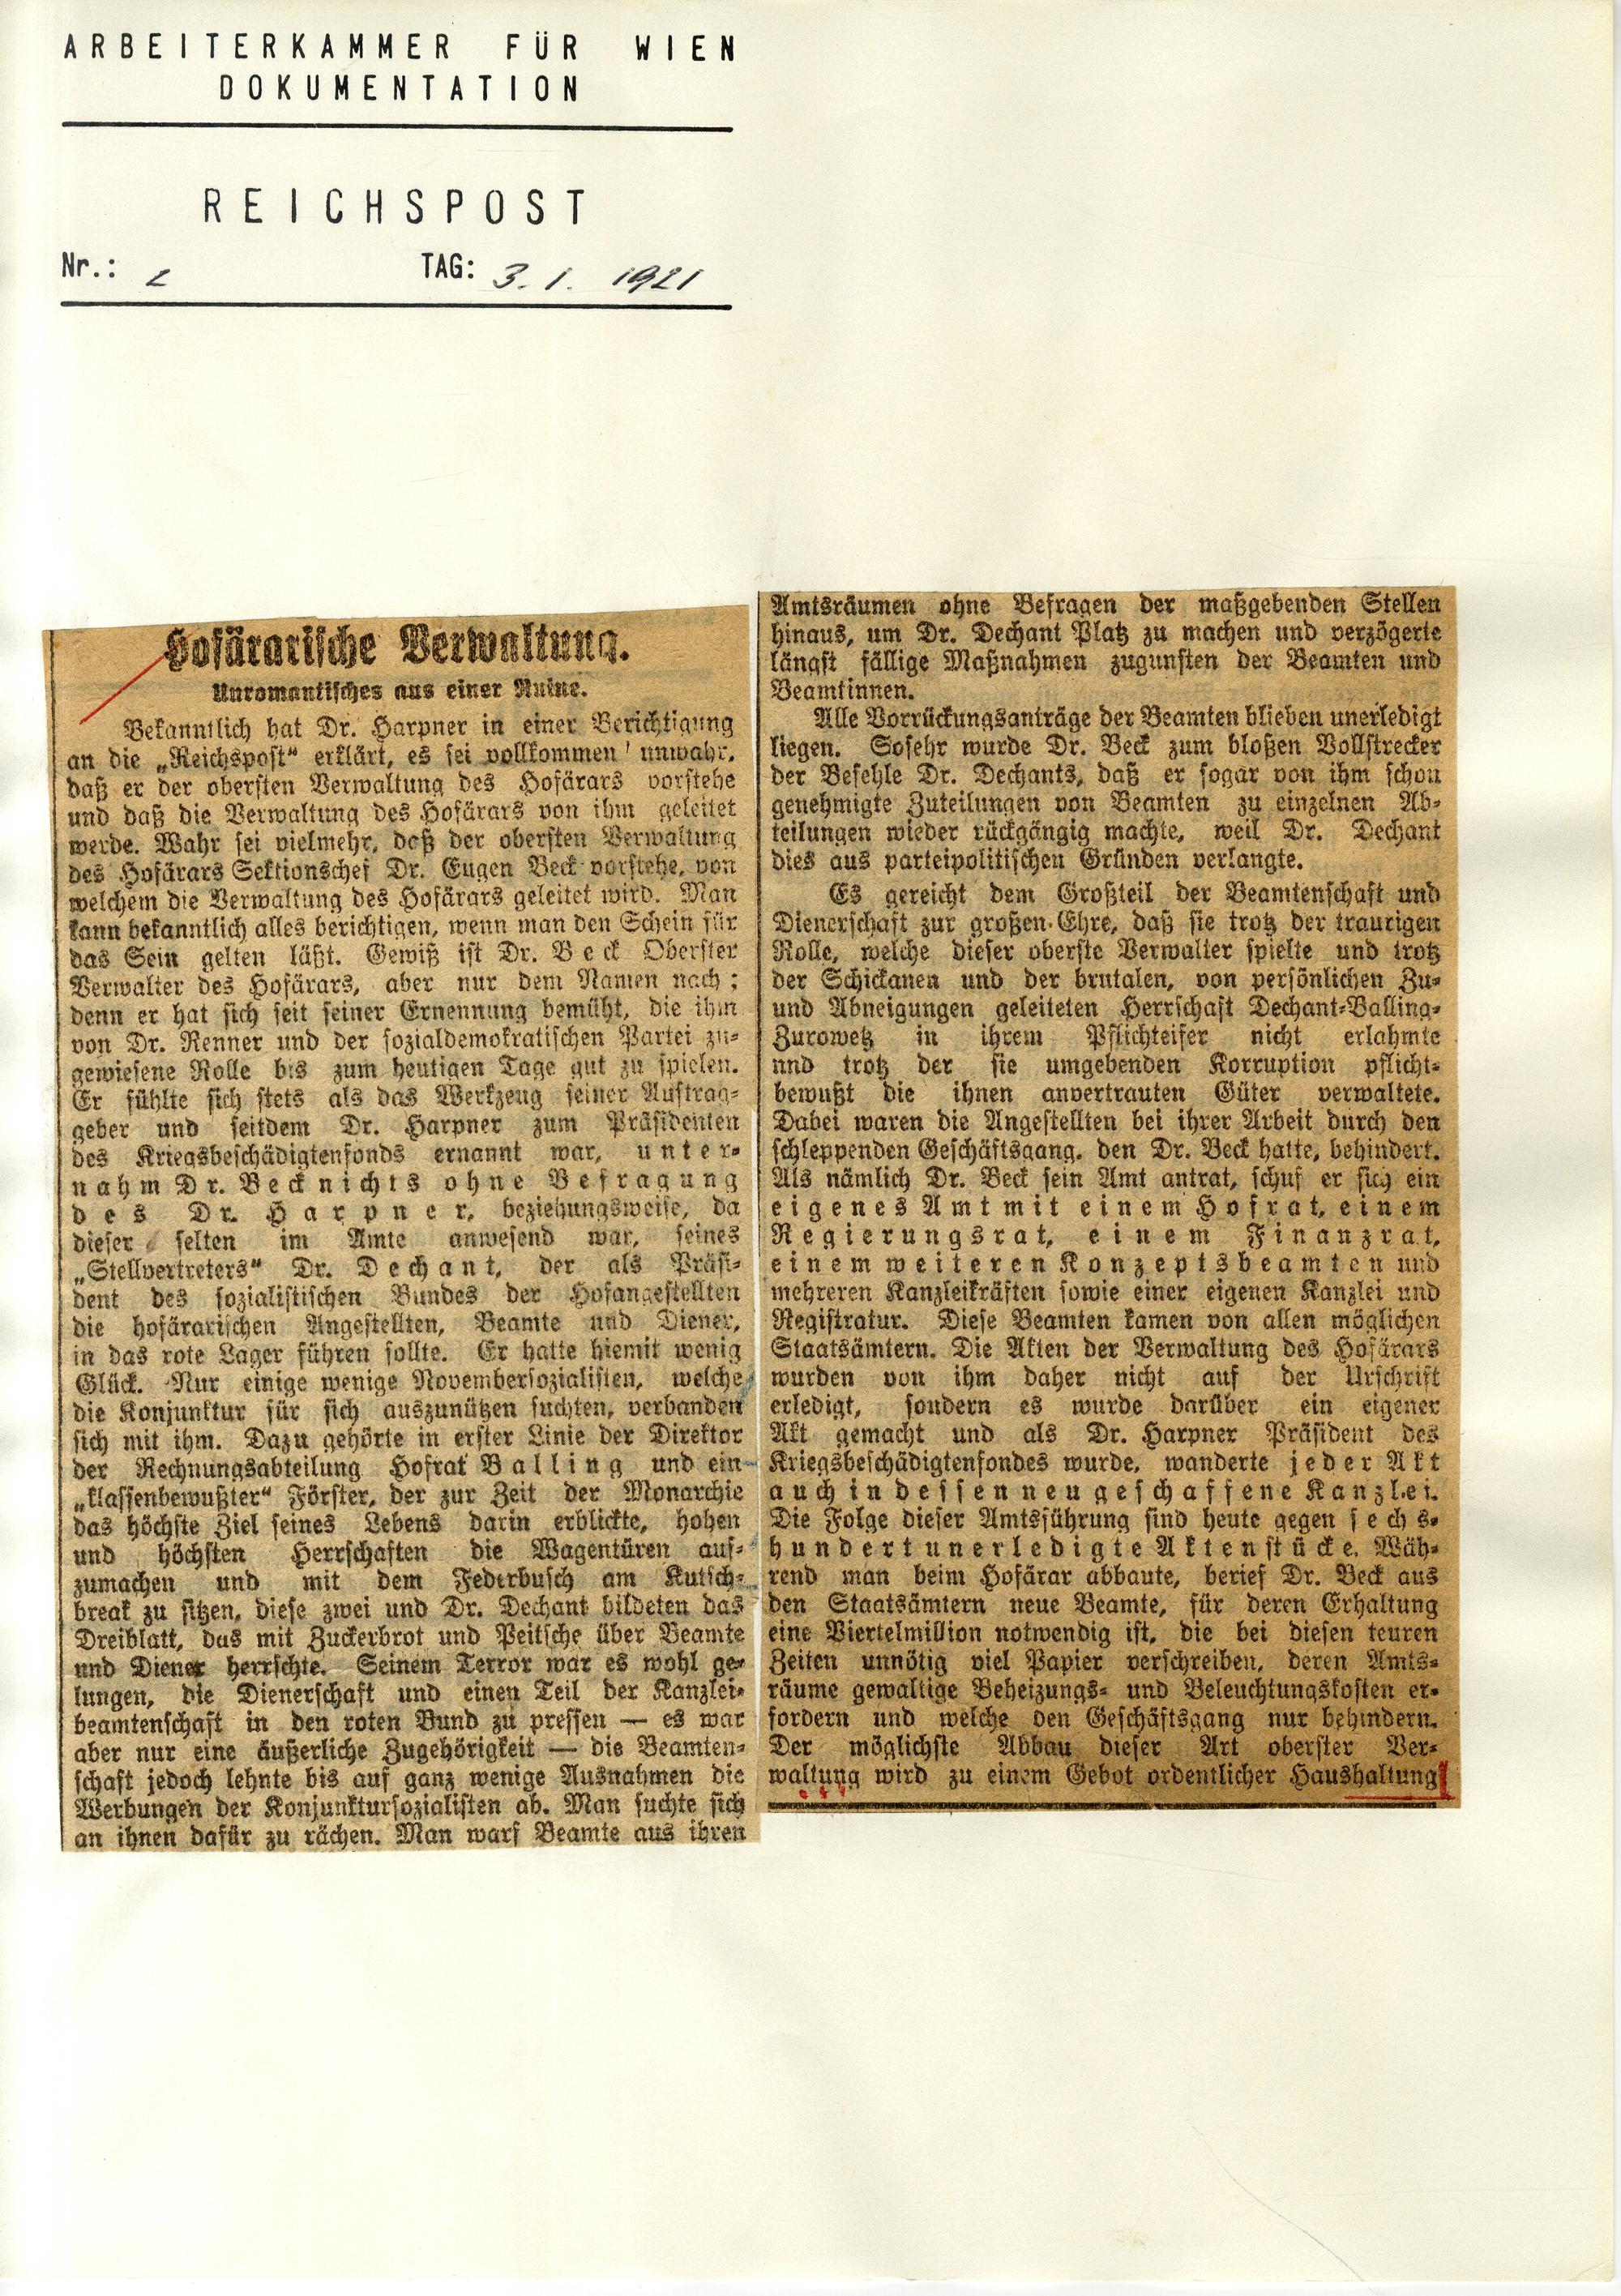 ARBEITERKAMMER FÜR WIEN
DOKUMENTATION
REICHSPOST
Nr.: 2 TAG: 3. 1. 1921
Hofärarische Verwaltung.
Unromantisches aus einer Ruine.
Bekanntlich hat Dr. Harpner in einer Berichtigung
an die „Reichspost“ erklärt, es sei vollkommen unwahr,
daß er der obersten Verwaltung des Hofärars vorstehe
und daß die Verwaltung des Hofärars von ihm geleitet
werde. Wahr sei vielmehr, daß der obersten Verwaltung
des Hofärars Sektionschef Dr. Eugen Beck vorstehe, von
welchem die Verwaltung des Hofärars geleitet wird. Man
kann bekanntlich alles berichtigen, wenn man den Schein für
das Sein gelten läßt. Gewiß ist Dr. Beck Oberster
Verwalter des Hofärars, aber nur dem Namen nach;
denn er hat sich seit seiner Ernennung bemüht, die ihm
von Dr. Renner und der sozialdemokratischen Partei zu-
gewiesene Rolle bis zum heutigen Tage gut zu spielen.
Er fühlte sich stets als das Werkzeug seiner Auftrag-
geber und seitdem Dr. Harpner zum Präsidenten
des Kriegsbeschädigtenfonds ernannt war, unter-
nahm Dr. Beck nichts ohne Befragung
des Dr. Harpner, beziehungsweise, da
dieser selten im Amte anwesend war, seines
„Stellvertreters“ Dr. Dechant, der als Präsi-
dent des sozialistischen Bundes der Hofangestellten
die hofärarischen Angestellten, Beamte und Diener,
in das rote Lager führen sollte. Er hatte hiemit wenig
Glück. Nur einige wenige Novembersozialisten, welche
die Konjunktur für sich auszunützen suchten, verbanden
sich mit ihm. Dazu gehörte in erster Linie der Direktor
der Rechnungsabteilung Hofrat Balling und ein
„klassenbewußter“ Förster, der zur Zeit der Monarchie
das höchste Ziel seines Lebens darin erblickte, hohen
und höchsten Herrschaften die Wagentüren auf-
zumachen und mit dem Federbusch am Kutsch-
break zu sitzen, diese zwei und Dr. Dechant bildeten das
Dreiblatt, das mit Zuckerbrot und Peitsche über Beamte
und Diener herrschte. Seinem Terror war es wohl ge-
lungen, die Dienerschaft und einen Teil der Kanzlei-
beamtenschaft in den roten Bund zu pressen — es war
aber nur eine äußerliche Zugehörigkeit — die Beamten-
schaft jedoch lehnte bis auf ganz wenige Ausnahmen die
Werbungen der Konjunktursozialisten ab. Man suchte sich
an ihnen dafür zu rächen. Man warf Beamte aus ihren
Amtsräumen ohne Befragen der maßgebenden Stellen
hinaus, um Dr. Dechant Platz zu machen und verzögerte
längst fällige Maßnahmen zugunsten der Beamten und
Beamtinnen.
Alle Vorrückungsanträge der Beamten blieben unerledigt
liegen. Sosehr wurde Dr. Beck zum bloßen Vollstrecker
der Befehle Dr. Dechants, daß er sogar von ihm schon
genehmigte Zuteilungen von Beamten zu einzelnen Ab-
teilungen wieder rückgängig machte, weil Dr. Dechant
dies aus parteipolitischen Gründen verlangte.
Es gereicht dem Großteil der Beamtenschaft und
Dienerschaft zur großen Ehre, daß sie trotz der traurigen
Rolle, welche dieser oberste Verwalter spielte und trotz
der Schickanen und der brutalen, von persönlichen Zu-
und Abneigungen geleiteten Herrschaft Dechant-Balling-
Zurowetz in ihrem Pflichteifer nicht erlahmte
und trotz der sie umgebenden Korruption pflicht-
bewußt die ihnen anvertrauten Güter verwaltete.
Dabei waren die Angestellten bei ihrer Arbeit durch den
schleppenden Geschäftsgang, den Dr. Beck hatte, behindert.
Als nämlich Dr. Beck sein Amt antrat, schuf er sich ein
eigenes Amt mit einem Hofrat, einem
Regierungsrat, einem Finanzrat,
einem weiteren Konzeptsbeamten und
mehreren Kanzleikräften sowie einer eigenen Kanzlei und
Registratur. Diese Beamten kamen von allen möglichen
Staatsämtern. Die Akten der Verwaltung des Hofärars
wurden von ihm daher nicht auf der Urschrift
erledigt, sondern es wurde darüber ein eigener
Akt gemacht und als Dr. Harpner Präsident des
Kriegsbeschädigtenfondes wurde, wanderte jeder Akt
auch in dessen neugeschaffene Kanzlei.
Die Folge dieser Amtsführung sind heute gegen sechs-
hundert unerledigte Aktenstücke. Wäh-
rend man beim Hofärar abbaute, berief Dr. Beck aus
den Staatsämtern neue Beamte, für deren Erhaltung
eine Viertelmillion notwendig ist, die bei diesen teuren
Zeiten unnötig viel Papier verschreiben, deren Amts-
räume gewaltige Beheizungs- und Beleuchtungskosten er-
fordern und welche den Geschäftsgang nur behindern.
Der möglichste Abbau dieser Art oberster Ver-
waltung wird zu einem Gebot ordentlicher Haushaltung!